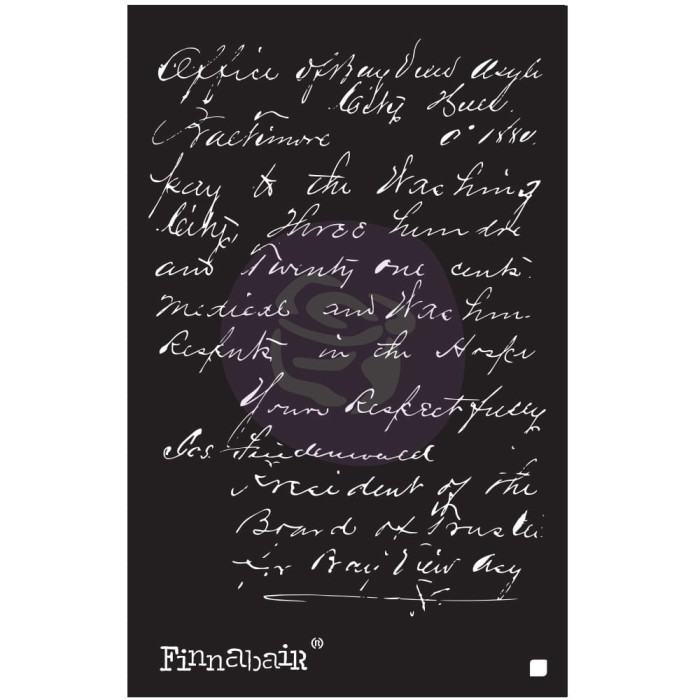 Office of Bay View Asyl
City Hall.
Baltimore 0° 1880.
pay to the Washing
City, Three hundre
and Twenty one cents.
Medical and Washin.
Respects in the Hospi
Yours Respectfully
Jas. Friedenwald
President of the
Board of Truste
for Bay View Asy
Finnabair®